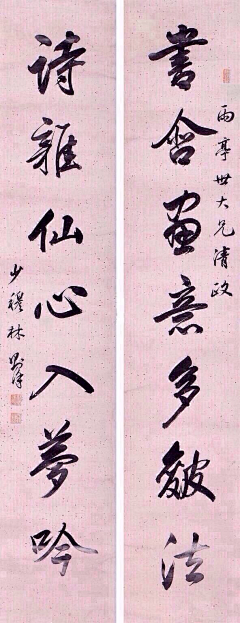 書含畫意多皴法
雨亭世大兄清政
詩雜仙心入夢吟
少穆林則徐